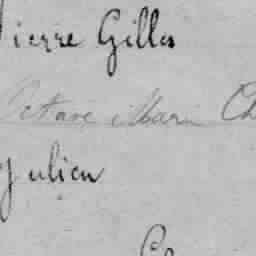 Pierre Gilles
Octave Marin Ch
Julien